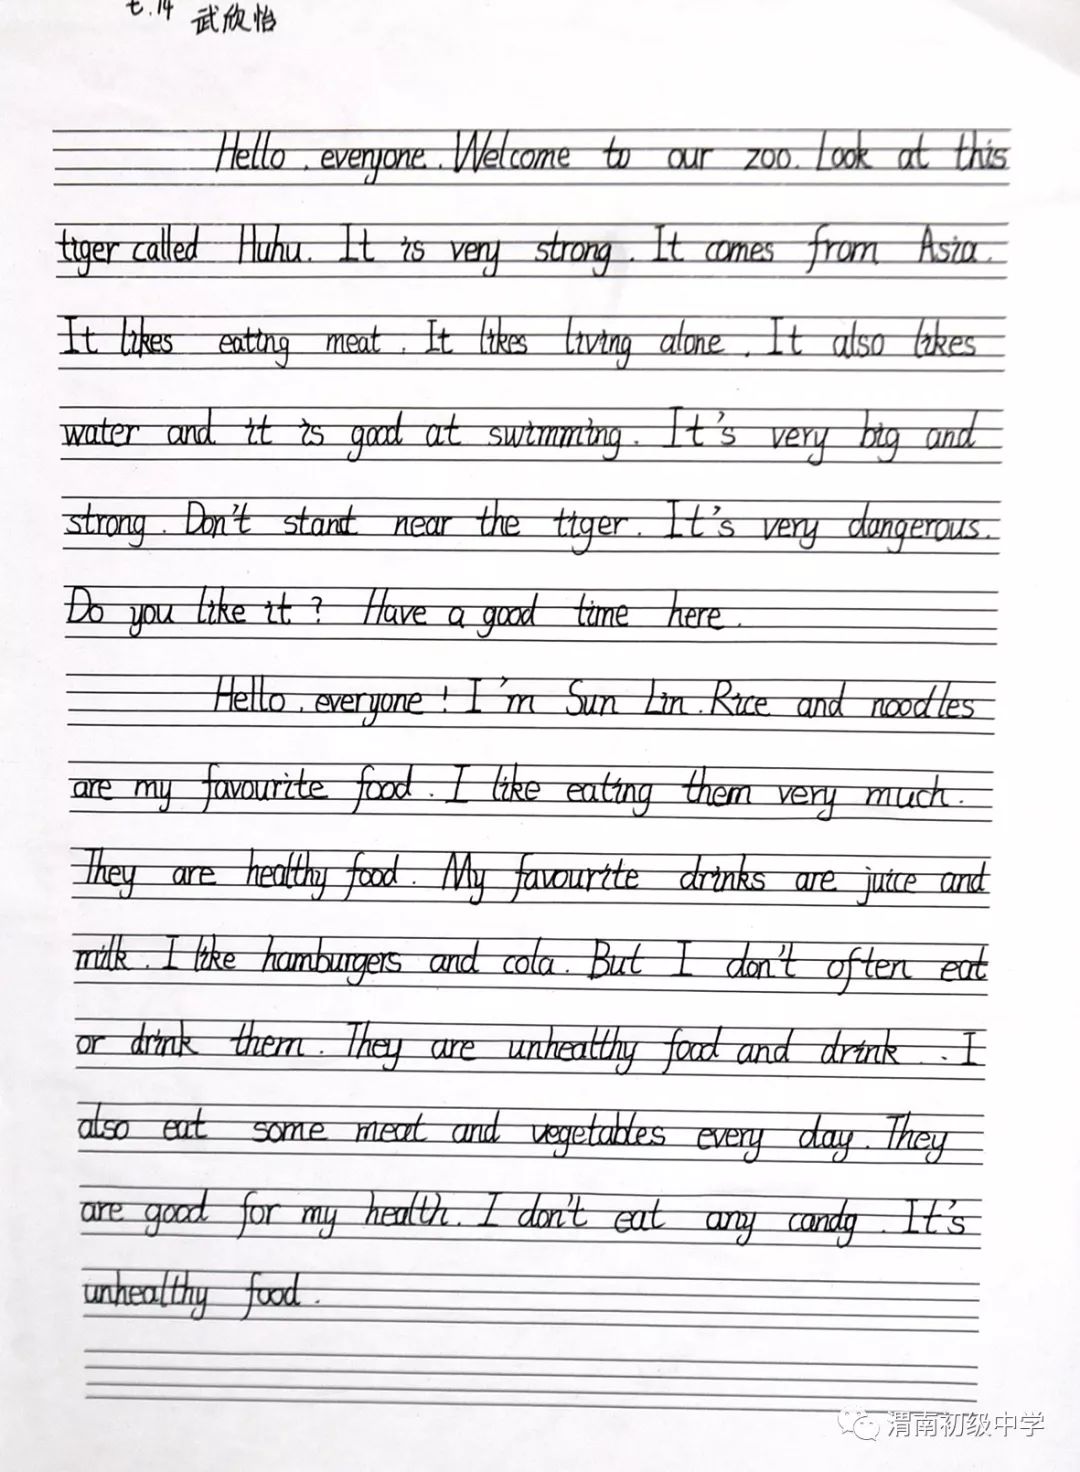 七.14 武欣怡
Hello, everyone. Welcome to our zoo. Look at this
tiger called Huhu. It is very strong. It comes from Asia.
It likes eating meat. It likes living alone. It also likes
water and it is good at swimming. It's very big and
strong. Don't stand near the tiger. It's very dangerous.
Do you like it? Have a good time here.
Hello, everyone! I'm Sun Lin. Rice and noodles
are my favourite food. I like eating them very much.
They are healthy food. My favourite drinks are juice and
milk. I like hamburgers and cola. But I don't often eat
or drink them. They are unhealthy food and drink. I
also eat some meat and vegetables every day. They
are good for my health. I don't eat any candy. It's
unhealthy food.
渭南初级中学